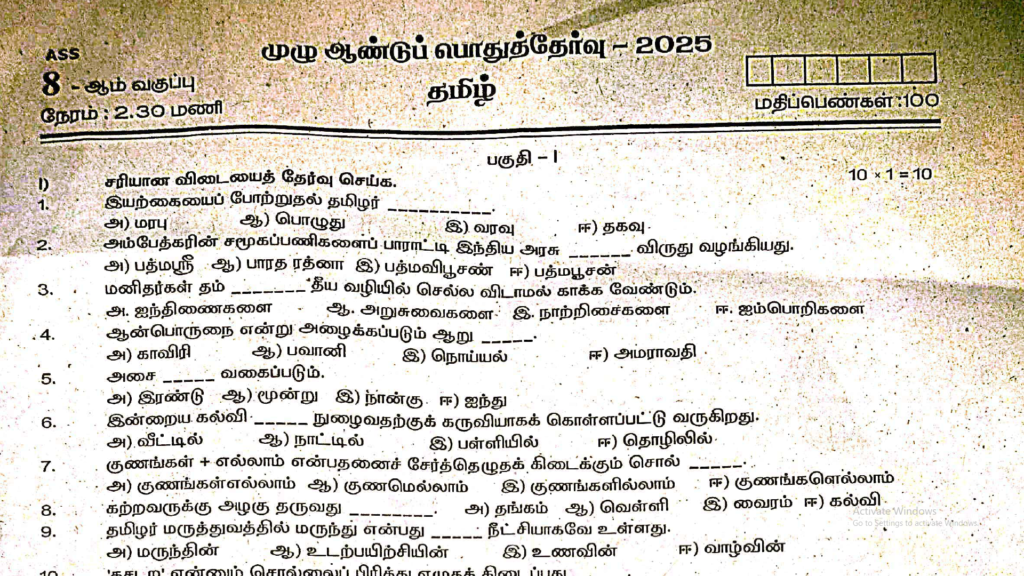 முழு ஆண்டுப் பொதுத்தேர்வு – 2025
ASS
8 - ஆம் வகுப்பு
தமிழ்
நேரம் : 2.30 மணி
மதிப்பெண்கள் :100
பகுதி – I
I) சரியான விடையைத் தேர்வு செய்க. 10 × 1 = 10
1. இயற்கையைப் போற்றுதல் தமிழர் __________.
அ) மரபு ஆ) பொழுது இ) வரவு ஈ) தகவு
2. அம்பேத்கரின் சமூகப்பணிகளைப் பாராட்டி இந்திய அரசு ______ விருது வழங்கியது.
அ) பத்மஸ்ரீ ஆ) பாரத ரத்னா இ) பத்மவிபூசண் ஈ) பத்மபூசன்
3. மனிதர்கள் தம் _______ தீய வழியில் செல்ல விடாமல் காக்க வேண்டும்.
அ. ஐந்திணைகளை ஆ. அறுசுவைகளை இ. நாற்றிசைகளை ஈ. ஐம்பொறிகளை
4. ஆன்பொருநை என்று அழைக்கப்படும் ஆறு _____.
அ) காவிரி ஆ) பவானி இ) நொய்யல் ஈ) அமராவதி
5. அசை _____ வகைப்படும்.
அ) இரண்டு ஆ) மூன்று இ) நான்கு ஈ) ஐந்து
6. இன்றைய கல்வி _____ நுழைவதற்குக் கருவியாகக் கொள்ளப்பட்டு வருகிறது.
அ) வீட்டில் ஆ) நாட்டில் இ) பள்ளியில் ஈ) தொழிலில்
7. குணங்கள் + எல்லாம் என்பதனைச் சேர்த்தெழுதக் கிடைக்கும் சொல் _____.
அ) குணங்கள்எல்லாம் ஆ) குணமெல்லாம் இ) குணங்களில்லாம் ஈ) குணங்களெல்லாம்
8. கற்றவருக்கு அழகு தருவது ________. அ) தங்கம் ஆ) வெள்ளி இ) வைரம் ஈ) கல்வி
9. தமிழர் மருத்துவத்தில் மருந்து என்பது _____ நீட்சியாகவே உள்ளது.
அ) மருந்தின் ஆ) உடற்பயிற்சியின் இ) உணவின் ஈ) வாழ்வின்
Activate Windows
Go to Settings to activate Windows.